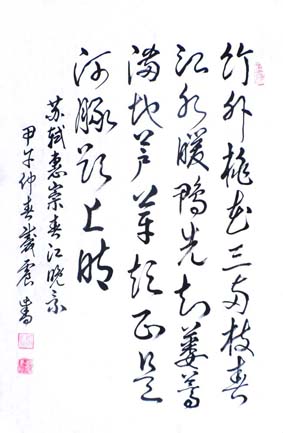 竹外桃花三两枝春
江水暖鸭先知蒌蒿
满地芦芽短正是
河豚欲上时
苏轼惠崇春江晓景
甲午仲春震书